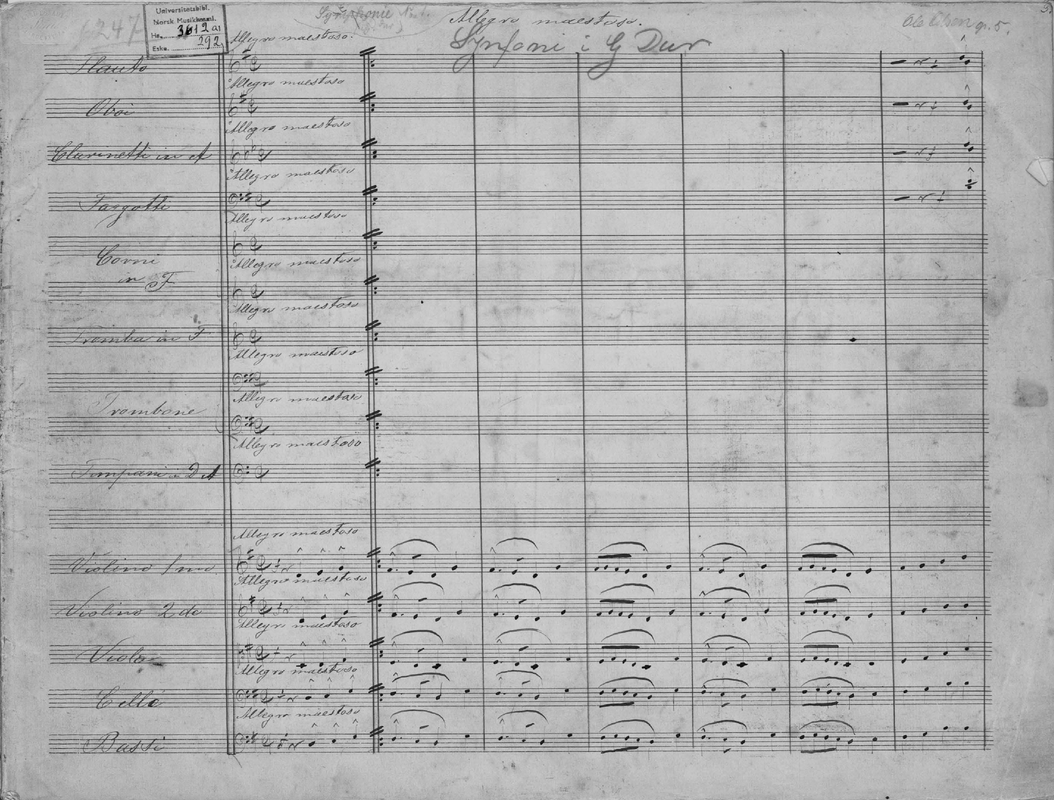 Universitetsbibl.
Norsk Musikksaml.
Hs. 3612 a1
Eske 292
Symphonie No. 1
Allegro maestoso.
Ole Olsen op. 5.
Synfoni i G Dur
Allegro maestoso.
Flauto
Allegro maestoso
Oboi
Allegro maestoso
Clarinetti in A
Allegro maestoso
Fagotti
Allegro maestoso
Corni
Allegro maestoso
in F
Allegro maestoso
Tromba in F
Allegro maestoso
Allegro maestoso
Trombone
Allegro maestoso
Timpani i D A
Allegro maestoso
Violino 1mo
Allegro maestoso
Violino 2do
Allegro maestoso
Viola
Allegro maestoso
Cello
Allegro maestoso
Bassi